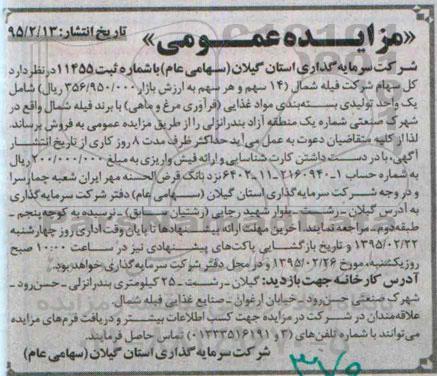 تاریخ انتشار: ۹۵/۲/۱۳
«مزایده عمومی»
شرکت سرمایه گذاری استان گیلان (سهامی عام) با شماره ثبت ۱۱۴۵۵ در نظر دارد
کل سهام شرکت فیله شمال (۱۴ سهم و هر سهم به ارزش بازار ۳۵۶/۹۵۰/۰۰۰ ریال) شامل
یک واحد تولیدی بسته‌بندی مواد غذایی (فرآوری مرغ و ماهی) با برند فیله شمال واقع در
شهرک صنعتی شماره یک منطقه آزاد بندرانزلی را از طریق مزایده عمومی به فروش برساند.
لذا از کلیه متقاضیان دعوت به عمل می‌آید حداکثر ظرف مدت ۸ روز کاری از تاریخ انتشار
آگهی، با در دست داشتن کارت شناسایی و ارائه فیش واریزی به مبلغ ۲۰۰/۰۰۰/۰۰۰ ریال
به شماره حساب ۱-۲۱۶۰۹۴۰-۱۱-۶۴۰۲ نزد بانک قرض الحسنه مهر ایران شعبه چمارسرا
و در وجه شرکت سرمایه گذاری استان گیلان (سهامی عام) دفتر شرکت سرمایه گذاری
به آدرس گیلان - رشت - بلوار شهید رجایی (رشتیان سابق) - نرسیده به کوچه پنجم -
طبقه دوم - مراجعه نمایند. آخرین مهلت ارائه پیشنهادها تا پایان وقت اداری روز چهارشنبه
۱۳۹۵/۰۲/۲۲ و تاریخ بازگشایی پاکت‌های پیشنهادی نیز در ساعت ۱۰:۰۰ صبح
روز یکشنبه، مورخ ۱۳۹۵/۰۲/۲۶ و در محل دفتر شرکت سرمایه گذاری خواهد بود.
آدرس کارخانه جهت بازدید: گیلان - رشت - ۲۵ کیلومتری بندرانزلی - حسن‌رود -
شهرک صنعتی حسن‌رود - خیابان ارغوان - صنایع غذایی فیله شمال.
علاقه‌مندان در شرکت در مزایده جهت کسب اطلاعات بیشتر و دریافت فرم‌های مزایده
می‌توانند با شماره تلفن‌های (۳ و ۰۱۳۳۳۵۱۶۱۹۱) تماس حاصل فرمایند.
شرکت سرمایه گذاری استان گیلان (سهامی عام)